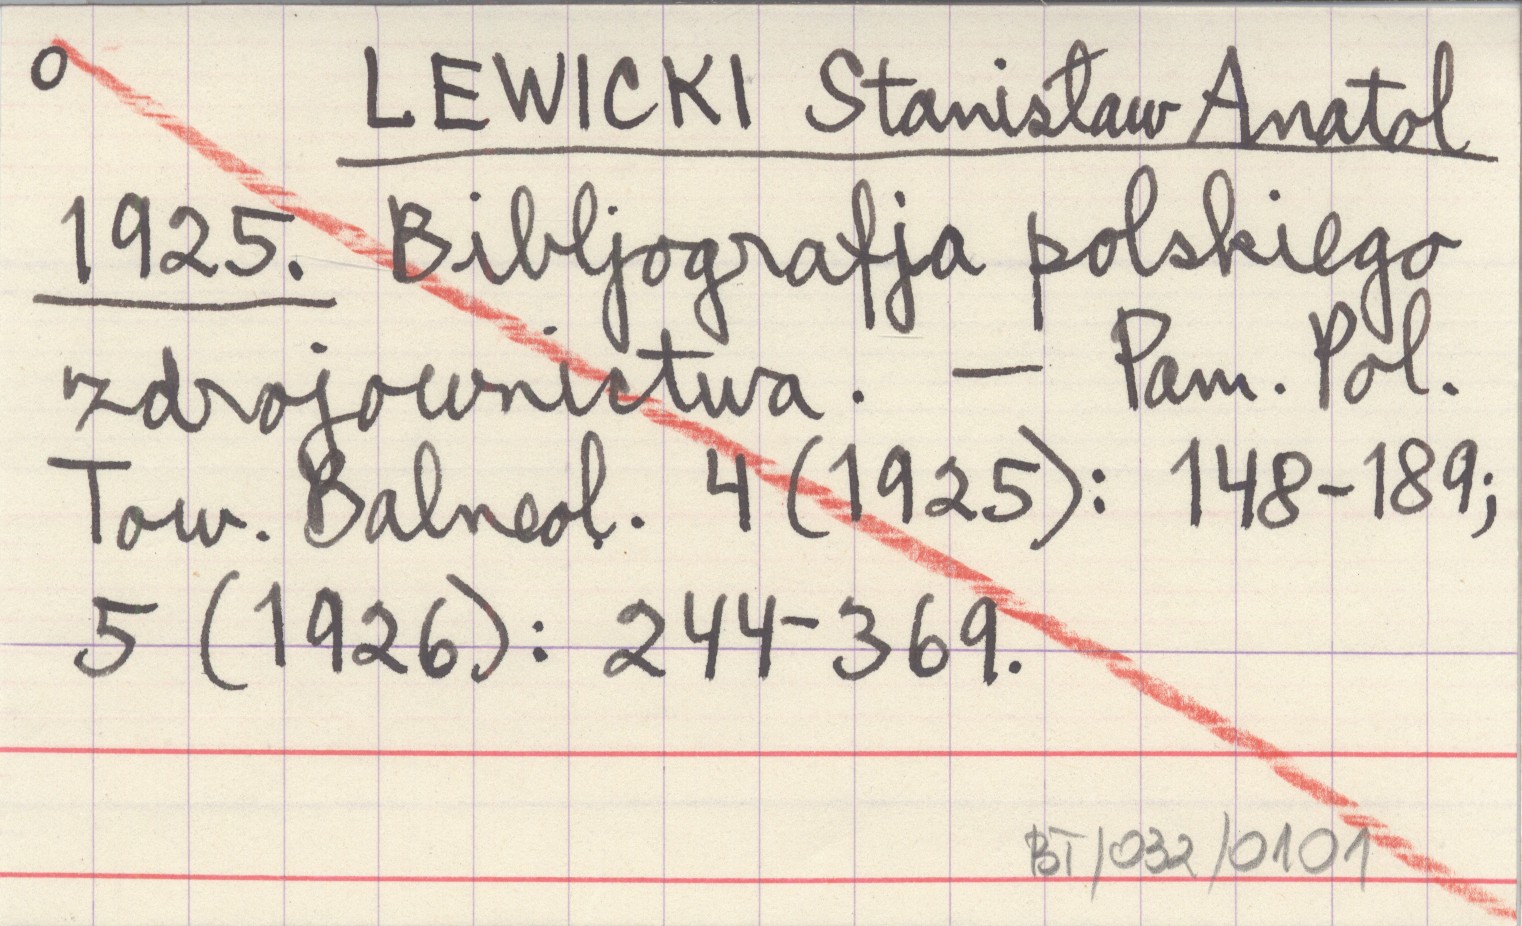 o LEWICKI Stanisław Anatol
1925. Bibljografja polskiego
zdrojownictwa. — Pam. Pol.
Tow. Balneol. 4 (1925): 148-189;
5 (1926): 244-369.
BT/032/0101